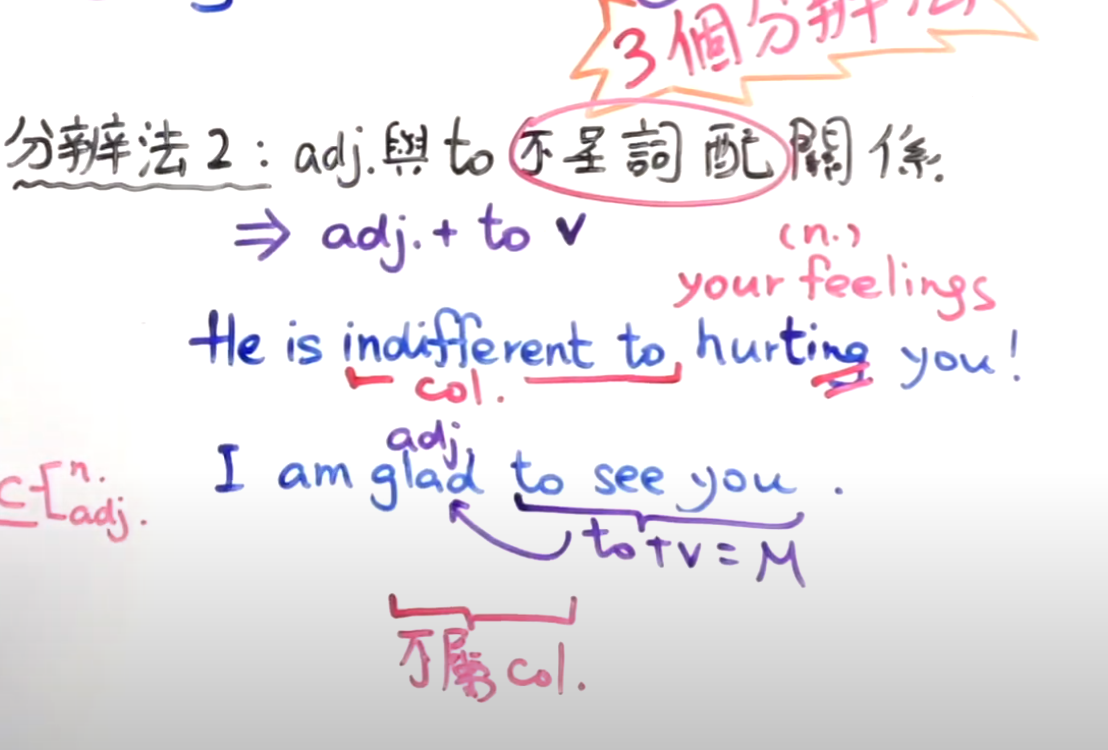 3個分辨法
分辨法2：adj.與to不是詞配關係.
⇒ adj.+ to v
(n.)
your feelings
He is indifferent to hurting you!
col.
adj.
I am glad to see you.
c-[n.
adj.
to+v=M
不屬col.